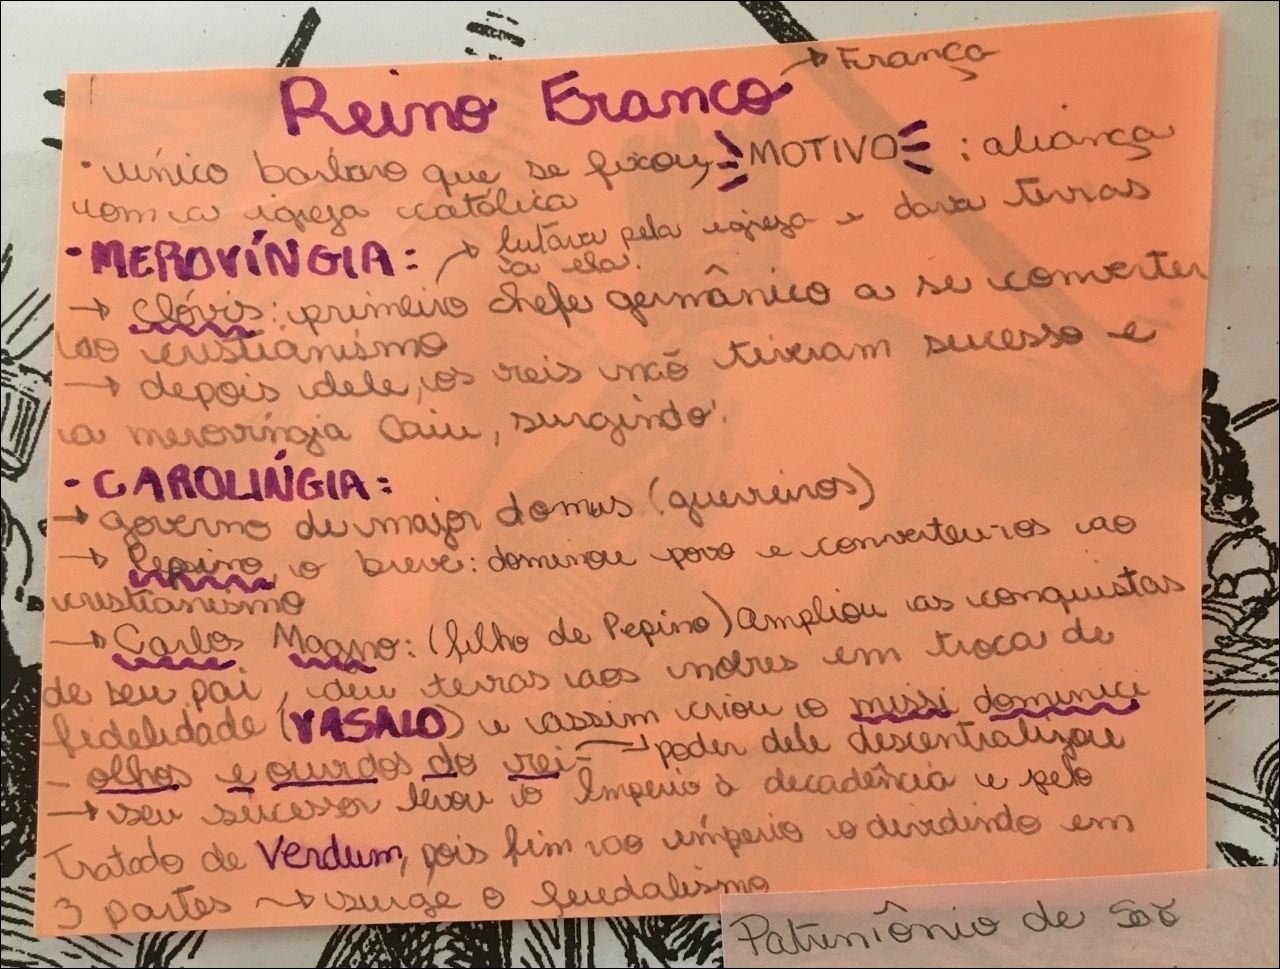 Reino Franco → França
• único bárbaro que se fixou, MOTIVO : aliança
com a igreja católica
• MEROVÍNGIA: → lutava pela igreja e dava terras
à ela.
→ Clóvis: primeiro chefe germânico a se converter
ao cristianismo
→ depois dele, os reis não tiveram sucesso e
a merovíngia caiu, surgindo:
• CAROLÍNGIA:
→ governo de major domus (guerreiros)
→ Pepino o breve: dominou povo e converteu-os ao
cristianismo
→ Carlos Magno: (filho de Pepino) ampliou as conquistas
de seu pai, deu terras aos nobres em troca de
fidelidade (VASALO) e assim criou o missi dominici
- olhos e ouvidos do rei - → poder dele descentralizou
→ seu sucessor levou o Império à decadência e pelo
Tratado de Verdum, pois fim ao império o dividindo em
3 partes → surge o feudalismo
Patrimônio de São